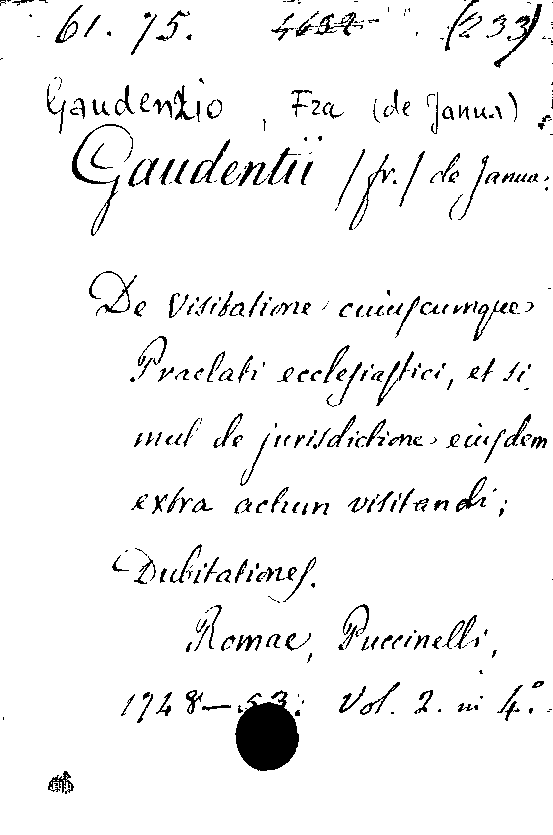 61. 75. 4632 (233)
Gaudenzio, Fra (de Janua)
Gaudentii /fr./ de Janua:
De Visitatione cuiuscumque
Praelati ecclesiastici, et si
mul de jurisdictione eiusdem
extra actum visitandi;
Dubitationes.
Romae, Puccinelli,
1748–53: Vol. 2. in 4.º